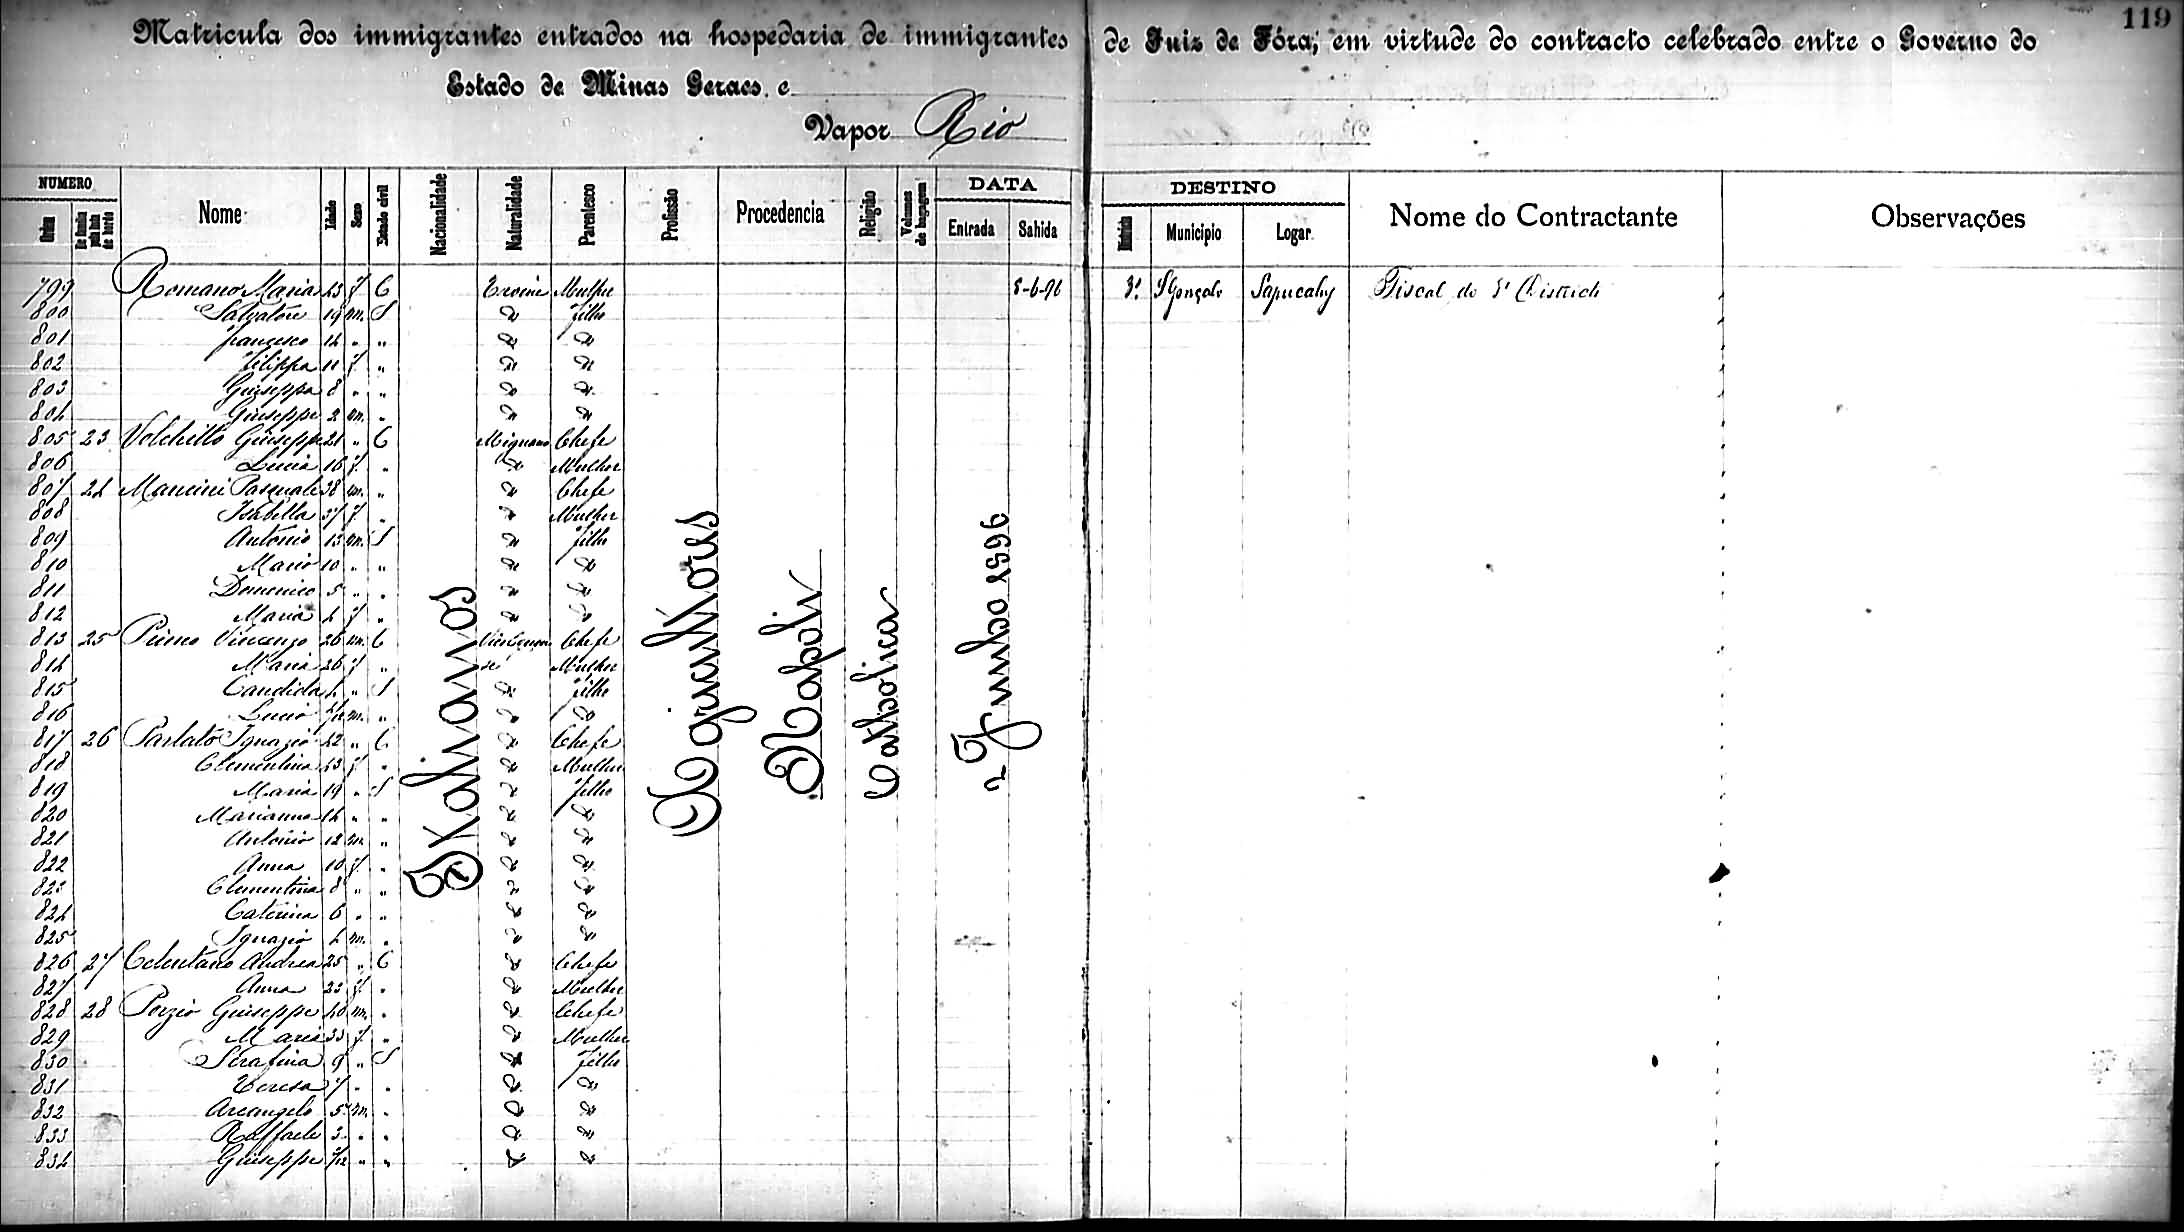 119
Matricula dos immigrantes entrados na hospedaria de immigrantes de Juiz de Fóra, em virtude do contracto celebrado entre o Governo do
Estado de Minas Geraes, e
Vapor Rio
NUMERO Nome Idade Sexo Estado civil Nacionalidade Naturalidade Parentesco Profissão Procedencia Religião Volumes de bagagem DATA Entrada Sahida DESTINO Municipio Logar Nome do Contractante Observações
Ordem
Italianos
Agricultores
Napoli
Catholica
2 Junho 1896
799 Romano Maria f C Mulher 5-6-96 3º S Gonçalo Sapucahy Fiscal do Districto
800 Salvatore 19 m. S " filho
801 Francesco 14 " " " "
802 Filippa 11 f. " " "
803 Giuseppa 8 " " " "
804 Giuseppe 2 m. " " "
805 23 Giuseppe 21 " C Mignano Chefe
806 Lucia 16 f. " " Mulher
807 24 Mancini Pasquale 38 m. " " Chefe
808 Isabella 37 f. " " Mulher
809 Antonio 13 m. S " filho
810 Mario 10 " " " "
811 Domenico 5 " " " "
812 Maria 4 f " " "
813 25 Primo Vincenzo 26 m. C Chefe
814 Maria 26 f " Mulher
815 Candida 4 " S " filho
816 Lucio m. " " "
817 26 Parlato Ignazio 42 " C " Chefe
818 Clementina 43 f. " " Mulher
819 Maria 19 " S " filho
820 Marianna 14 " " " "
821 Antonio 12 m. " " "
822 Anna 10 f. " " "
823 Clementina 8 " " " "
824 Caterina 6 " " " "
825 Ignazio 4 m. " " "
826 27 Celentano Andrea 25 " C " Chefe
827 Anna 22 f. " " Mulher
828 28 Porzio Giuseppe 40 m. " " Chefe
829 Maria 33 f. " " Mulher
830 Serafina 9 " S " filho
831 Teresa 7 " " " "
832 Arcangelo 5 m. " " "
833 Raffaele 3 " " " "
834 Giuseppe " " " "